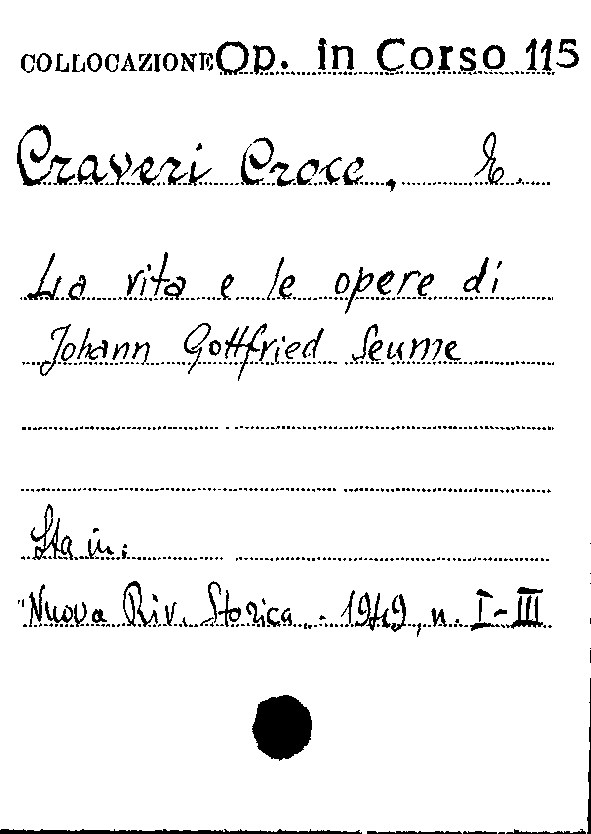 COLLOCAZIONE Op. in Corso 115
Craveri Croce, E.
La vita e le opere di
Johann Gottfried Seume
Sta in:
"Nuova Riv. Storica„ - 1949, n. I-III